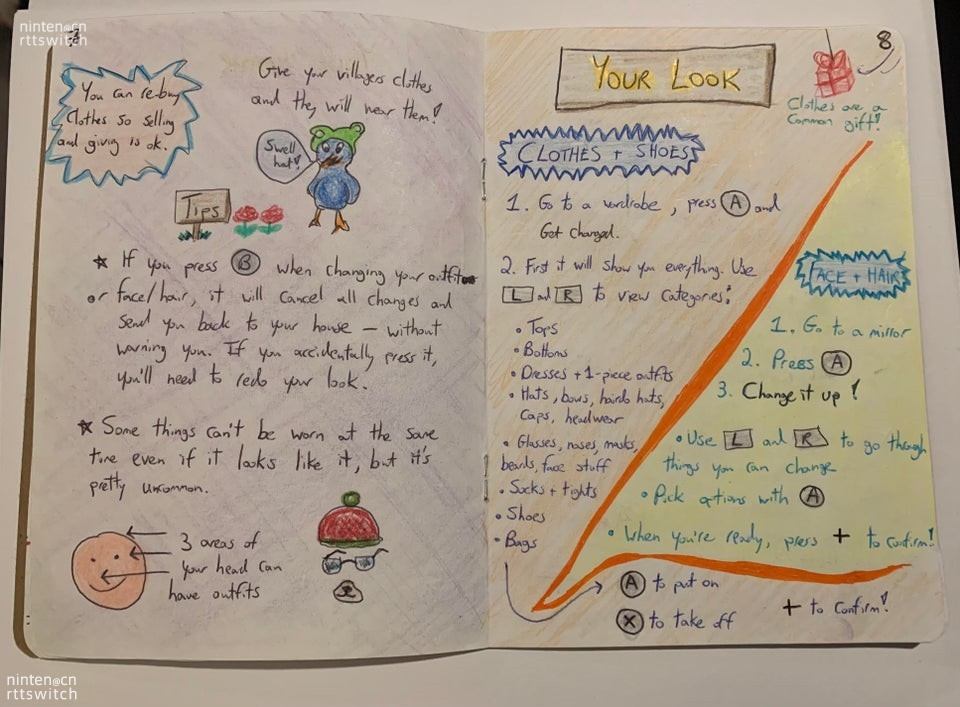 ninten@cn
rttswitch
7
You can re-buy
clothes so selling
and giving is ok.
Give your villagers clothes
and they will wear them!
Swell
hat!
Tips
★ If you press B when changing your outfit
or face/hair, it will cancel all changes and
send you back to your house — without
warning you. If you accidentally press it,
you'll need to redo your look.
★ Some things can't be worn at the same
time even if it looks like it, but it's
pretty uncommon.
3 areas of
your head can
have outfits
8
YOUR LOOK
Clothes are a
common gift!
CLOTHES + SHOES
1. Go to a wardrobe, press A and
Get Changed.
2. First it will show you everything. Use
L and R to view categories:
• Tops
• Bottoms
• Dresses + 1-piece outfits
• Hats, bows, hairdo hats,
caps, headwear
• Glasses, noses, masks,
beards, face stuff
• Socks + tights
• Shoes
• Bags
A to put on
X to take off
+ to confirm!
FACE + HAIR
1. Go to a mirror
2. Press A
3. Change it up!
• Use L and R to go through
things you can change
• Pick options with A
• When you're ready, press + to confirm!
ninten@cn
rttswitch